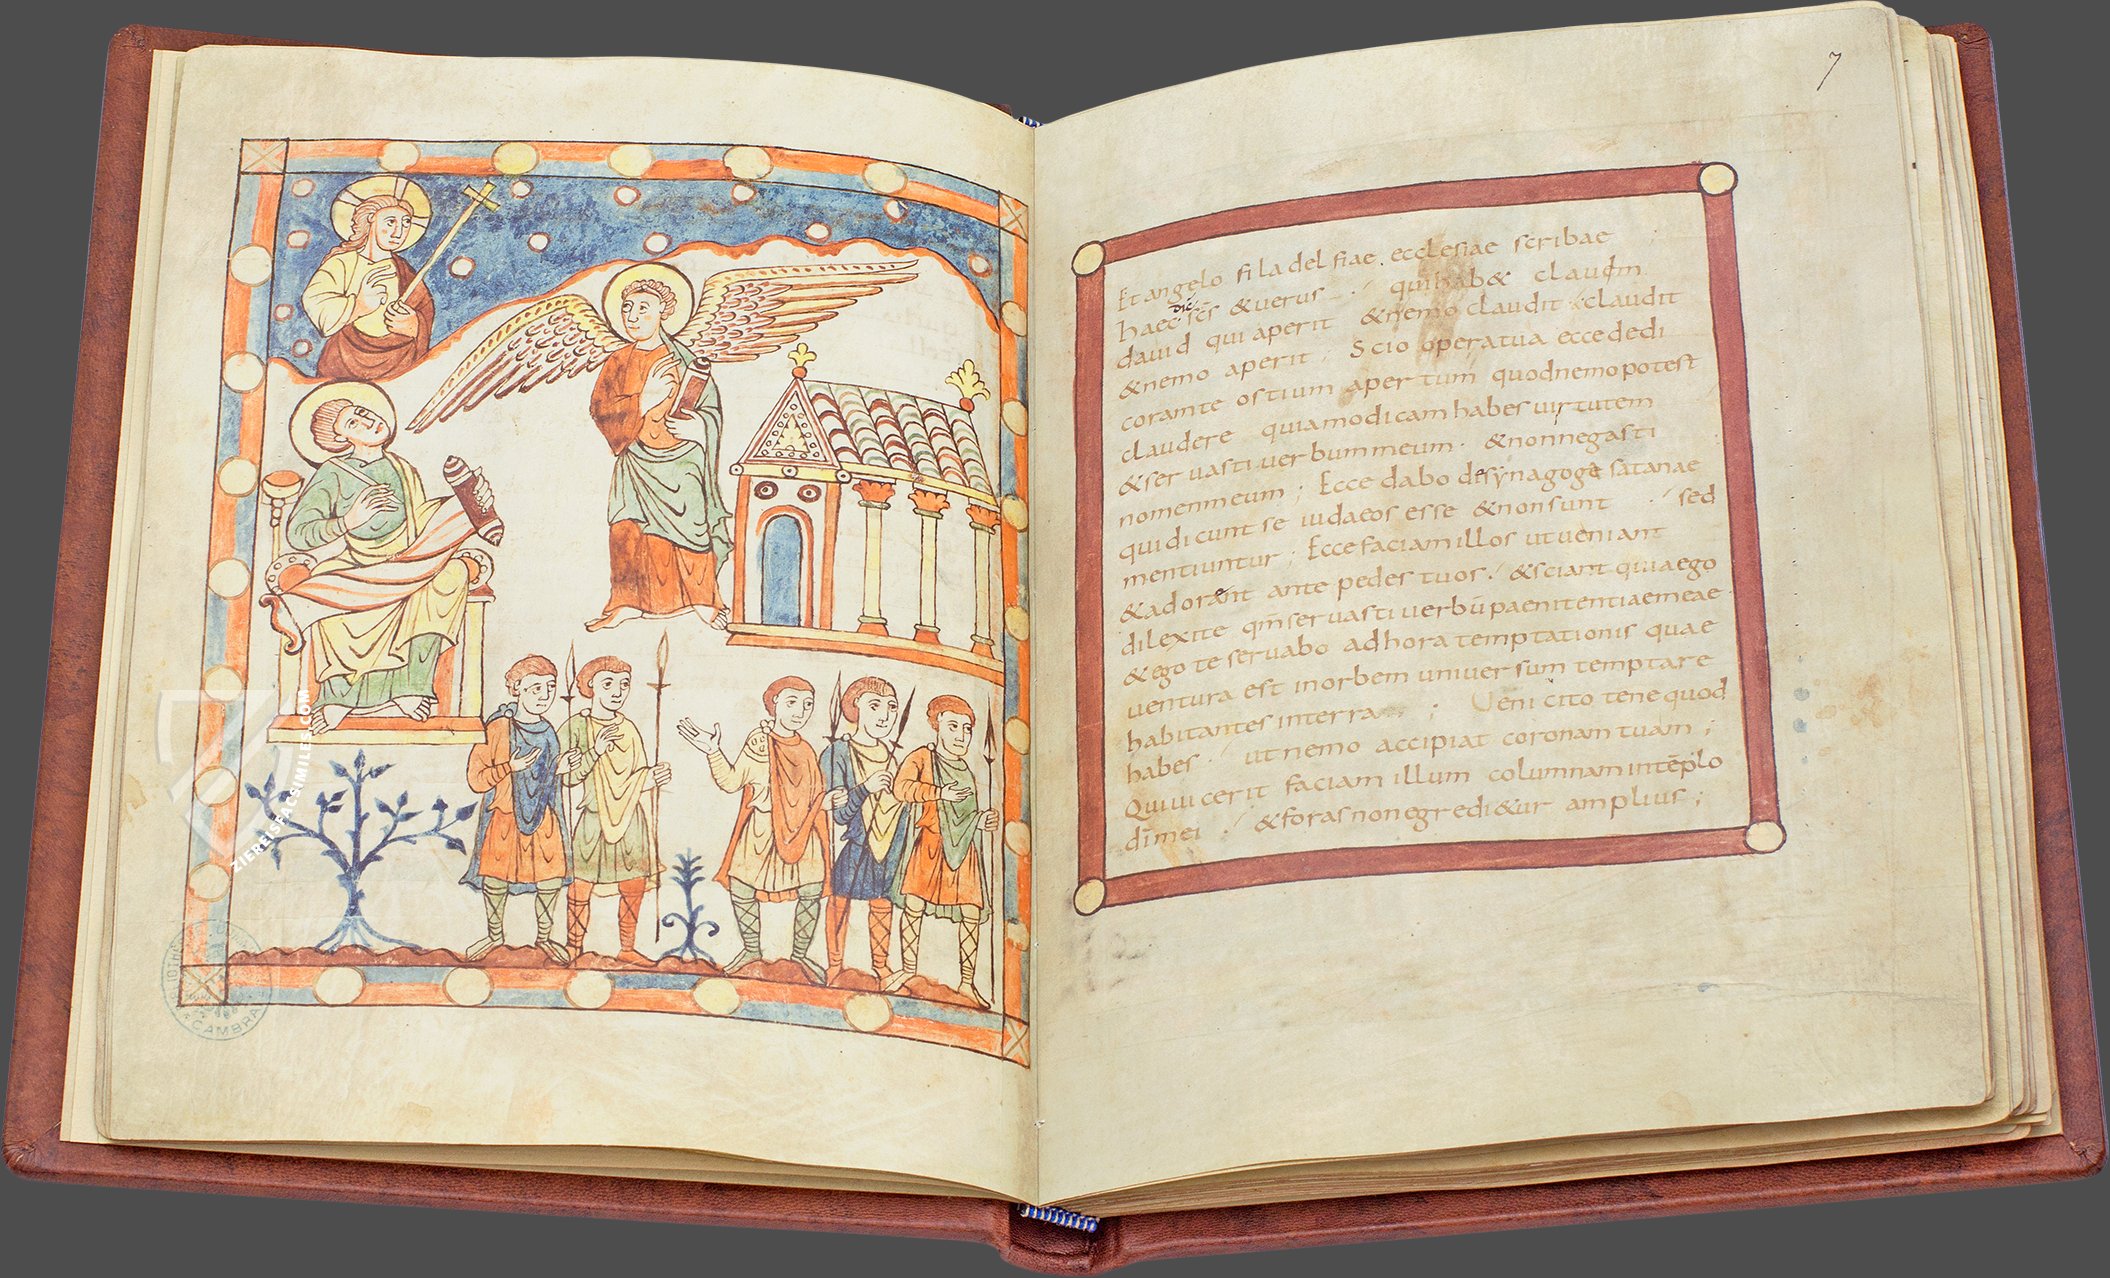 ZIEREISFACSIMILES.COM
CAMBRA
7
Et angelo filadelfiae . ecclesiae scribae
haec dic̄ sc̄s & uerus . qui hab& claudm
dauid qui aperit & nemo claudit claudit
& nemo aperit . Scio opera tua ecce dedi
coram te ostium apertum quod nemo potest
claudere quia modicam habes uirtutem
& seruasti uerbum meum . & non negasti
nomen meum ; Ecce dabo de synagoge satanae
qui dicunt se iudaeos esse & non sunt sed
mentiuntur ; Ecce faciam illos ut ueniant
& adorent ante pedes tuos . & sciant quia ego
dilexi te qm̄ seruasti uerbū paenitentiae meae
& ego te seruabo ad hora temptationis quae
uentura est in orbem uniuersum temptare
habitantes in terra ; Ueni cito tene quod
habes . ut nemo accipiat coronam tuam ;
Qui uicerit faciam illum columnam in tēplo
dī mei . & foras non egredi&ur amplius ;